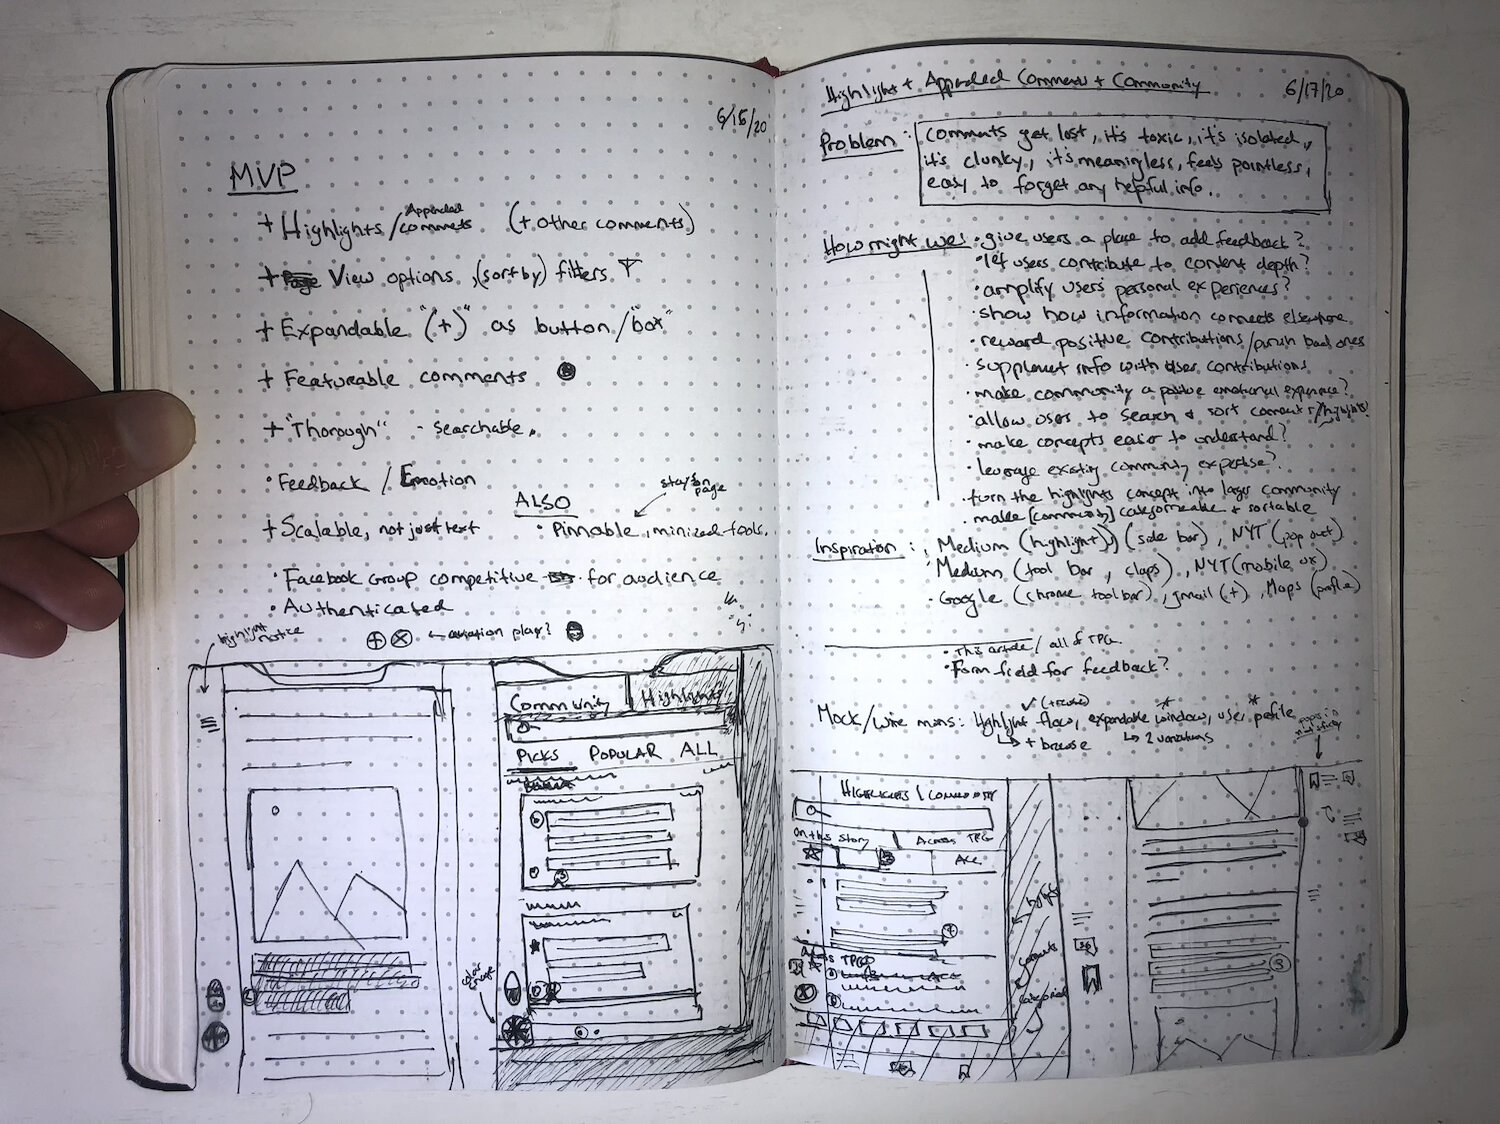 6/15/20
MVP
+ Highlights / Appended comments (+ other comments)
+ View options, (sort by) filters
+ Expandable "(+)" as button/"box"
+ Featureable comments
+ "Thorough" - searchable.
· Feedback / Emotion
+ Scalable, not just text
ALSO
stays on page
· Pinnable, minimized tools.
· Facebook Group competitive for audience
· Authenticated
highlight notice
← aviation play?
Community Highlights
PICKS POPULAR ALL
Highlights + Appended Comments + Community
6/17/20
Problem: comments get lost, it's toxic, it's isolated,
it's clunky, it's meaningless, feels pointless,
easy to forget any helpful info.
How might we: · give users a place to add feedback?
· let users contribute to content depth?
· amplify users' personal experiences?
· show how information connects elsewhere
· reward positive contributions/punish bad ones
· supplement info with user contributions
· make community a positive emotional experience?
· allow users to search + sort comments/highlights?
· make concepts easier to understand?
· leverage existing community expertise?
· turn the highlights concept into larger community
· make [community] categorizable + sortable
Inspiration: · Medium (highlight) (side bar), NYT (pop out)
· Medium (tool bar, claps), NYT (mobile ux)
· Google (chrome toolbar), gmail (+), Maps (profile)
· This article / all of TPG
· Form field for feedback?
Mock/wire mons: Highlight flow, expandable window, user profile
↳ + browse
↳ 2 variations
HIGHLIGHTS \ COMMUNITY
On this story Across TPG
ALL
Across TPG
3